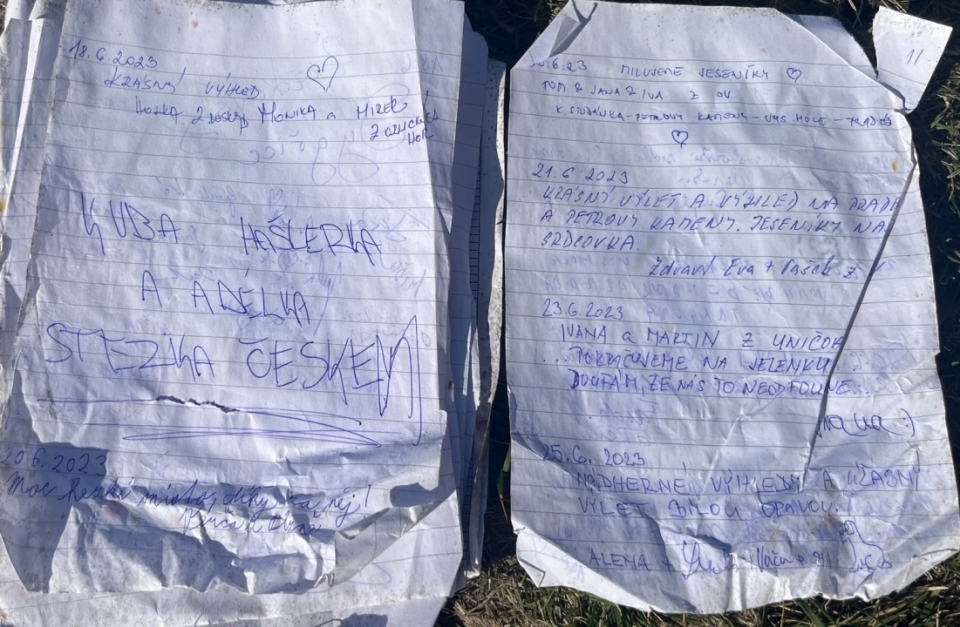 18.6.2023
KRÁSNÝ VÝHLED
MONIKA a MIREK
Z
HOR
KUBA HAŠLERKA
A ADÉLKA
STEZKA ČESKEM
20.6.2023
Moc hezké místo, díky za něj!
.6.23 MILUJEME JESENÍKY
TOM & JANA & IVA Z OV
K.STUDÁNKA-PETROVY KAMENY-VYS.HOLE-PRADĚD
21.6.2023
KRÁSNÝ VÝLET A VÝHLED NA PRADĚ
A PETROVY KAMENY. JESENÍKY NA
SRDCOVKA
Zdraví Eva + Vašek z
23.6.2023
IVANA a MARTIN Z UNIČOV
...POKRAČUJEME NA JELENKU...
DOUFÁM, ŽE NÁS TO NEODFOUKNE...
:)
25.6.2023
NÁDHERNÉ VÝHLEDY A ÚŽASNÝ
VÝLET BÍLOU OPAVOU.
ALENA +
11